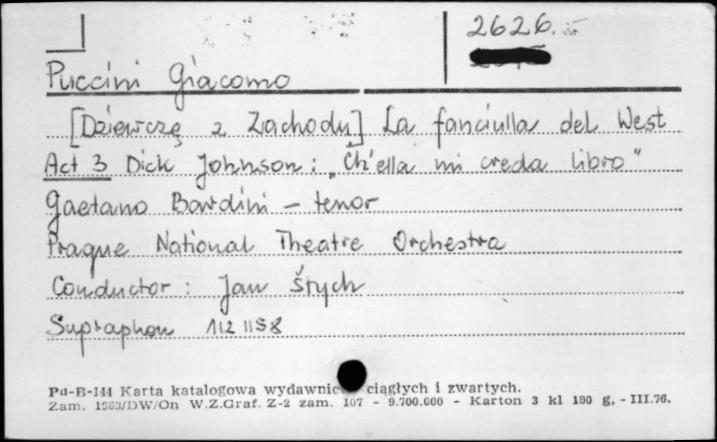 2626.
Puccini Giacomo
[Dziewczę z Zachodu] La fanciulla del West
Act 3 Dick Johnson: „Ch'ella mi creda libro"
Gaetano Bardini – tenor
Prague National Theatre Orchestra
Conductor: Jan Štych
Supraphon 112 1138
Pu-B-144 Karta katalogowa ciągłych i zwartych.
Zam. 1963/DW/On W.Z.Graf. Z-2 zam. 107 - 9.700.000 - Karton 3 kl 190 g, - III.76.